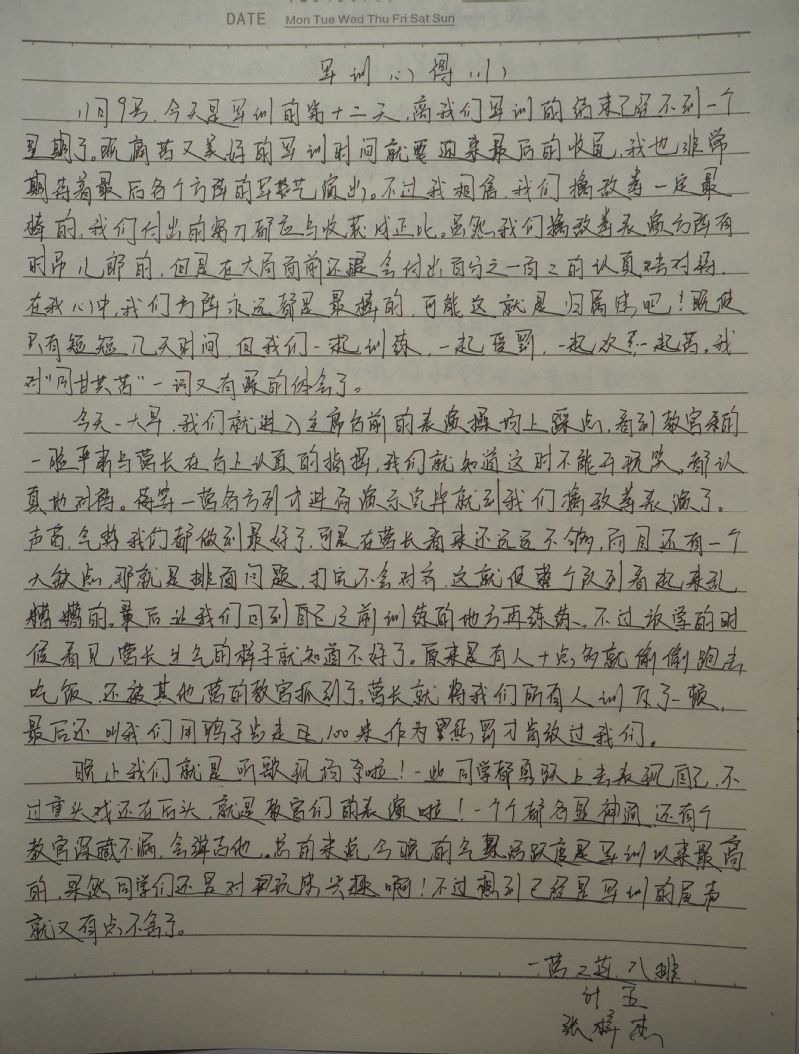 DATE Mon Tue Wed Thu Fri Sat Sun
军训心得(八)
11月9号,今天是军训的第十二天,离我们军训的结束已经不到一个
星期了。既痛苦又美好的军训时间就要迎来最后的收尾,我也非常
期待着最后各个方阵的军势艺演出。不过我相信,我们擒敌拳一定最
棒的,我们付出的努力都应与收获成正比。虽然我们擒敌拳表演方阵有
时吊儿郎的,但是在大局面前还是会付出百分之一百二的认真去对待,
在我心中,我们方阵永远都是最棒的,可能这就是归属感吧!既使
只有短短几天时间,但我们一起训练,一起受罚,一起欢乐一起苦。我
对“同甘共苦”一词又有深的体会了。
今天一大早,我们就进入主席台前的表演操场上踩点,看到教官们的
一脸严肃与营长在台上认真的指挥,我们就知道这时不能再玩笑,都认
真地对待。等一营各方列才进行演示完毕就到我们擒敌拳表演了。
声音,气势我们都做到最好了,可是在营长看来还远远不够,而且还有一个
大缺点,那就是排面问题,打完不会对齐,这就使整个队列看起来乱
糟糟的。最后让我们回到自己之前训练的地方再练练。不过放学的时
候看见营长生气的样子就知道不好了。原来是有人十点多就偷偷跑去
吃饭,还被其他营的教官抓到了。营长就将我们所有人训斥了一顿,
最后还叫我们用鸭子步走足100米作为惩罚才肯放过我们。
晚上我们就是听歌现场了啦!一些同学都勇跃上去表现自己,不
过重头戏还在后头,就是教官们的表演啦!一个个都各显神通,还有个
教官深藏不漏,会弹吉他。总的来说今晚的气氛活跃度是军训以来最高
的,果然同学们还是对玩感兴趣啊!不过想到已经是军训的尾声
就又有点不舍了。
一营二连八排
张梓杰